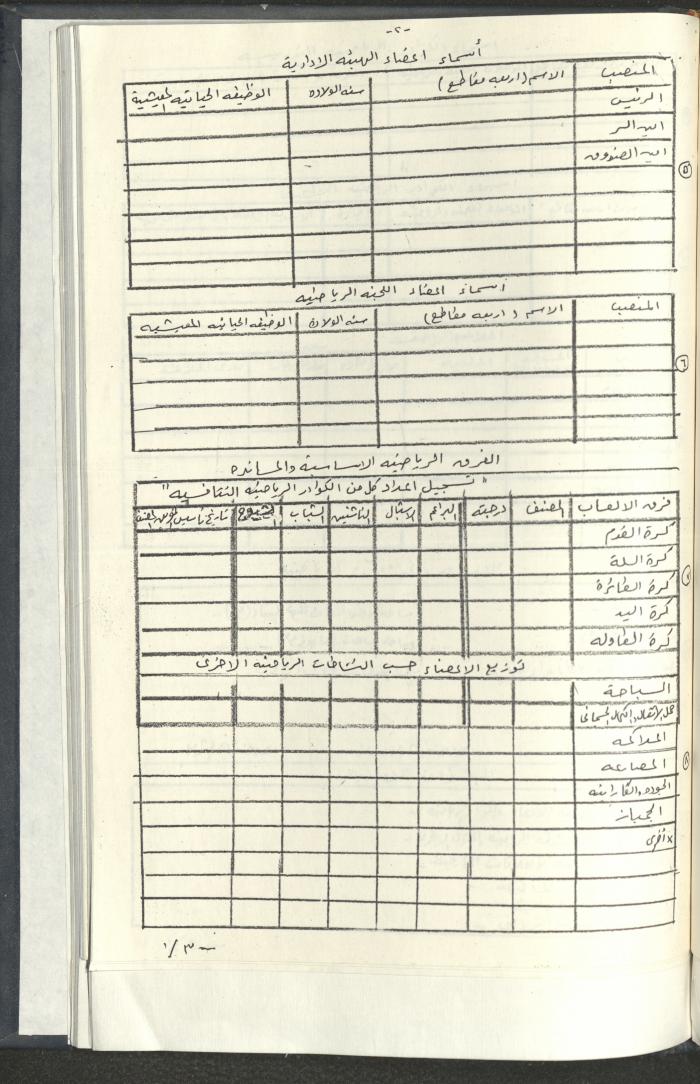 -٢-
أسماء اعضاء الهيئه الادارية
المنصب الاسم (اربعه مقاطع) سنه الولاده الوظيفه الحياتيه المعيشية
الرئيس
امين السر
امين الصندوق
٥
أسماء اعضاء اللجنه الرياضيه
المنصب الاسم (اربعه مقاطع) سنه الولادة الوظيفه الحياتيه المعيشيه
٦
الفرق الرياضيه الاساسية والمسانده
"تسجيل اعداد كل من الكوادر الرياضيه التنافسيه"
فرق الالعاب المصنف درجته البراعم الاشبال الناشئين الشباب الشيوخ تاريخ تأسيس
كرة القدم
كرة السلة
كرة الطائرة
كرة اليد
كرة الطاوله
توزيع الاعضاء حسب النشاطات الرياضيه الاخرى
السباحة
حمل الاثقال وكمال الجسماني
الملاكمه
٨
المصارعه
الجودو والكاراتيه
الجمباز
× أخرى
١/٣٠